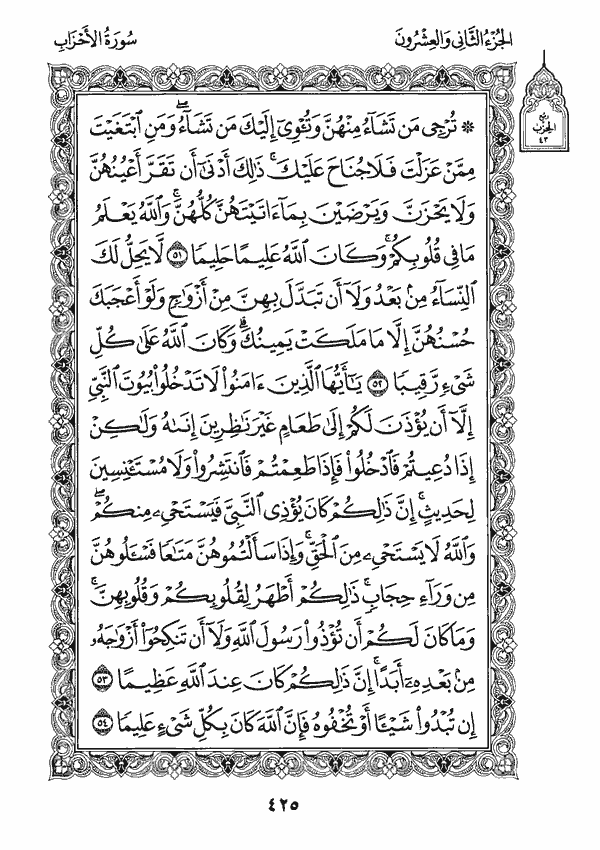 الجُزْءُ الثَّانِي وَالعِشْرُونَ
سُورَةُ الأَحْزَابِ
ربع
الحزب
٤٣
۞ تُرْجِى مَن تَشَآءُ مِنْهُنَّ وَتُـْٔوِىٓ إِلَيْكَ مَن تَشَآءُۖ وَمَنِ ٱبْتَغَيْتَ
مِمَّنْ عَزَلْتَ فَلَا جُنَاحَ عَلَيْكَۚ ذَٰلِكَ أَدْنَىٰٓ أَن تَقَرَّ أَعْيُنُهُنَّ
وَلَا يَحْزَنَّ وَيَرْضَيْنَ بِمَآ ءَاتَيْتَهُنَّ كُلُّهُنَّۚ وَٱللَّهُ يَعْلَمُ
مَا فِى قُلُوبِكُمْۚ وَكَانَ ٱللَّهُ عَلِيمًا حَلِيمًا ٥١ لَّا يَحِلُّ لَكَ
ٱلنِّسَآءُ مِنۢ بَعْدُ وَلَآ أَن تَبَدَّلَ بِهِنَّ مِنْ أَزْوَٰجٍ وَلَوْ أَعْجَبَكَ
حُسْنُهُنَّ إِلَّا مَا مَلَكَتْ يَمِينُكَۗ وَكَانَ ٱللَّهُ عَلَىٰ كُلِّ
شَىْءٍ رَّقِيبًا ٥٢ يَـٰٓأَيُّهَا ٱلَّذِينَ ءَامَنُوا۟ لَا تَدْخُلُوا۟ بُيُوتَ ٱلنَّبِىِّ
إِلَّآ أَن يُؤْذَنَ لَكُمْ إِلَىٰ طَعَامٍ غَيْرَ نَـٰظِرِينَ إِنَىٰهُ وَلَـٰكِنْ
إِذَا دُعِيتُمْ فَٱدْخُلُوا۟ فَإِذَا طَعِمْتُمْ فَٱنتَشِرُوا۟ وَلَا مُسْتَـْٔنِسِينَ
لِحَدِيثٍۚ إِنَّ ذَٰلِكُمْ كَانَ يُؤْذِى ٱلنَّبِىَّ فَيَسْتَحْىِۦ مِنكُمْۖ
وَٱللَّهُ لَا يَسْتَحْىِۦ مِنَ ٱلْحَقِّۚ وَإِذَا سَأَلْتُمُوهُنَّ مَتَـٰعًا فَسْـَٔلُوهُنَّ
مِن وَرَآءِ حِجَابٍۚ ذَٰلِكُمْ أَطْهَرُ لِقُلُوبِكُمْ وَقُلُوبِهِنَّۚ
وَمَا كَانَ لَكُمْ أَن تُؤْذُوا۟ رَسُولَ ٱللَّهِ وَلَآ أَن تَنكِحُوٓا۟ أَزْوَٰجَهُۥ
مِنۢ بَعْدِهِۦٓ أَبَدًاۚ إِنَّ ذَٰلِكُمْ كَانَ عِندَ ٱللَّهِ عَظِيمًا ٥٣
إِن تُبْدُوا۟ شَيْـًٔا أَوْ تُخْفُوهُ فَإِنَّ ٱللَّهَ كَانَ بِكُلِّ شَىْءٍ عَلِيمًا ٥٤
٤٢٥